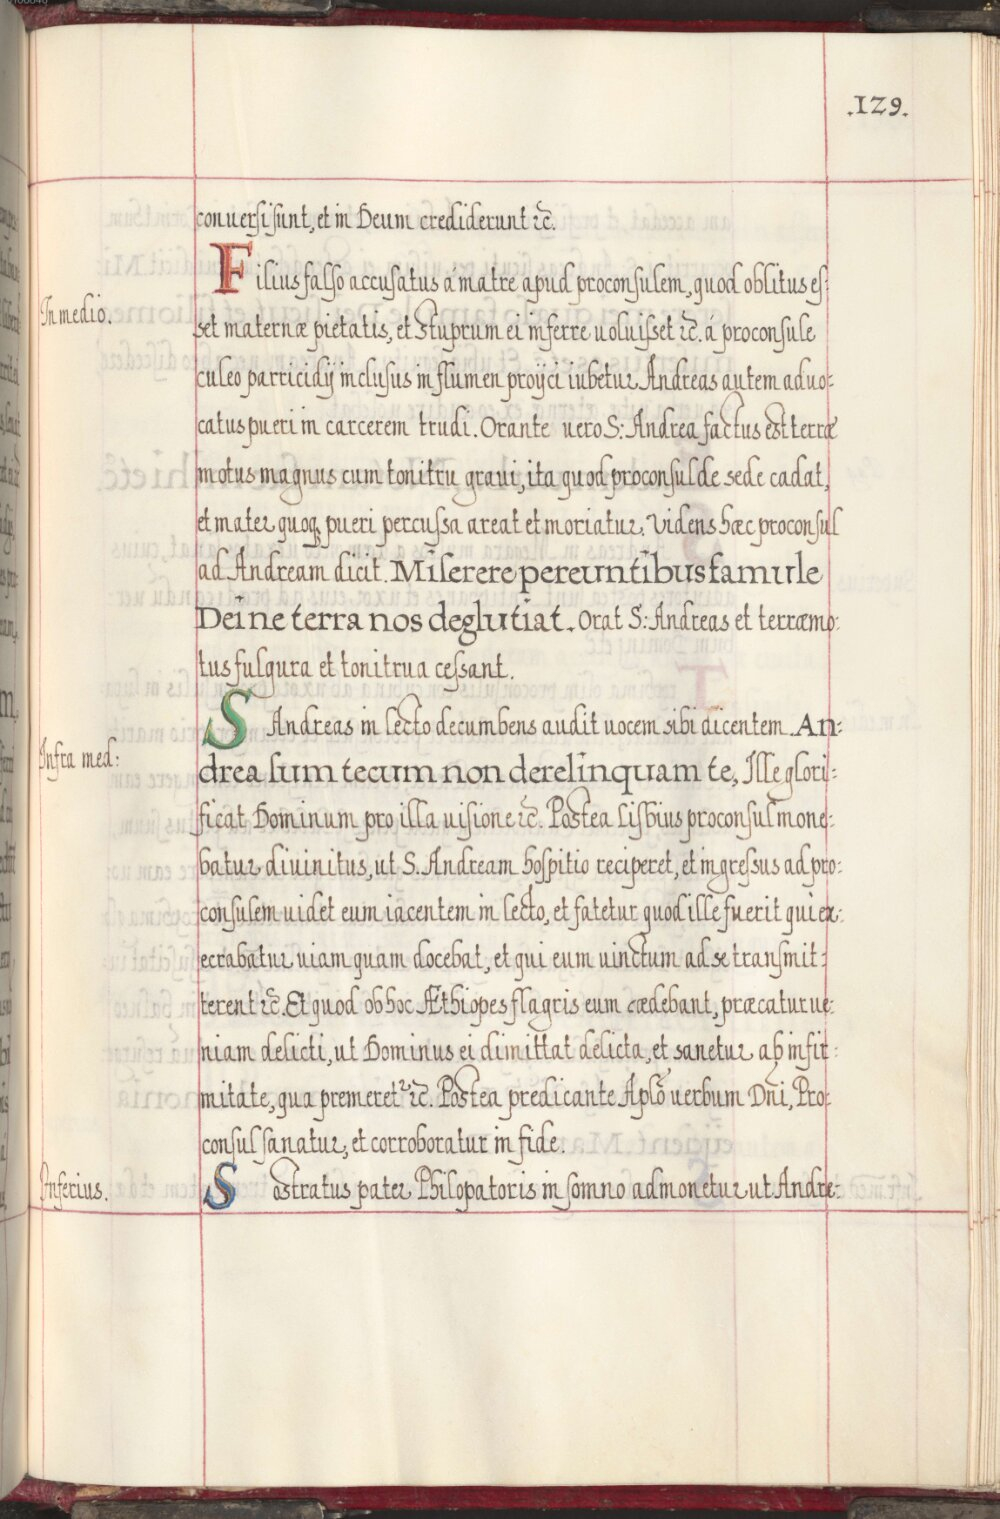 .129.
conuersi sunt, et in Deum crediderunt ꝛc̄.
Filius falso accusatus á matre apud proconsulem, quod oblitus es:
In medio.
set maternæ pietatis, et stuprum ei inferre uoluisset ꝛc̄. á proconsule
culeo parricidij inclusus in flumen proijci iubetur Andreas autem aduo:
catus pueri in carcerem trudi. Orante uero S: Andrea factus est terræ
motus magnus cum tonitru graui, ita quod proconsul de sede cadat,
et mater quoqꝫ pueri percussa areat et moriatur. Videns hæc proconsul
ad Andream dicit. Miserere pereuntibus famule
Dei ne terra nos deglutiat. Orat S: Andreas et terræmo:
tus fulgura et tonitrua cessant.
S Andreas in lecto decumbens audit uocem sibi dicentem. An:
Infra med:
drea sum tecum non derelinquam te, Ille glori:
ficat Dominum pro illa uisione ꝛc̄. Postea Lisbius proconsul mone:
batur diuinitus, ut S. Andream hospitio reciperet, et ingressus ad pro:
consulem uidet eum iacentem in lecto, et fatetur quod ille fuerit qui ex:
ecrabatur uiam quam docebat, et qui eum uinctum ad se transmit:
terent ꝛc̄. Et quod ob hoc Æthiopes flagris eum cædebant, præcatur ue:
niam delicti, ut Dominus ei dimittat delicta, et sanetur ab infir:
mitate, qua premeretᷣ ꝛc̄. Postea predicante Aplō uerbum Dn̄i, Pro:
consul sanatur, et corroboratur in fide.
Inferius.
Sostratus pater Philopatoris in somno admonetur ut Andre: